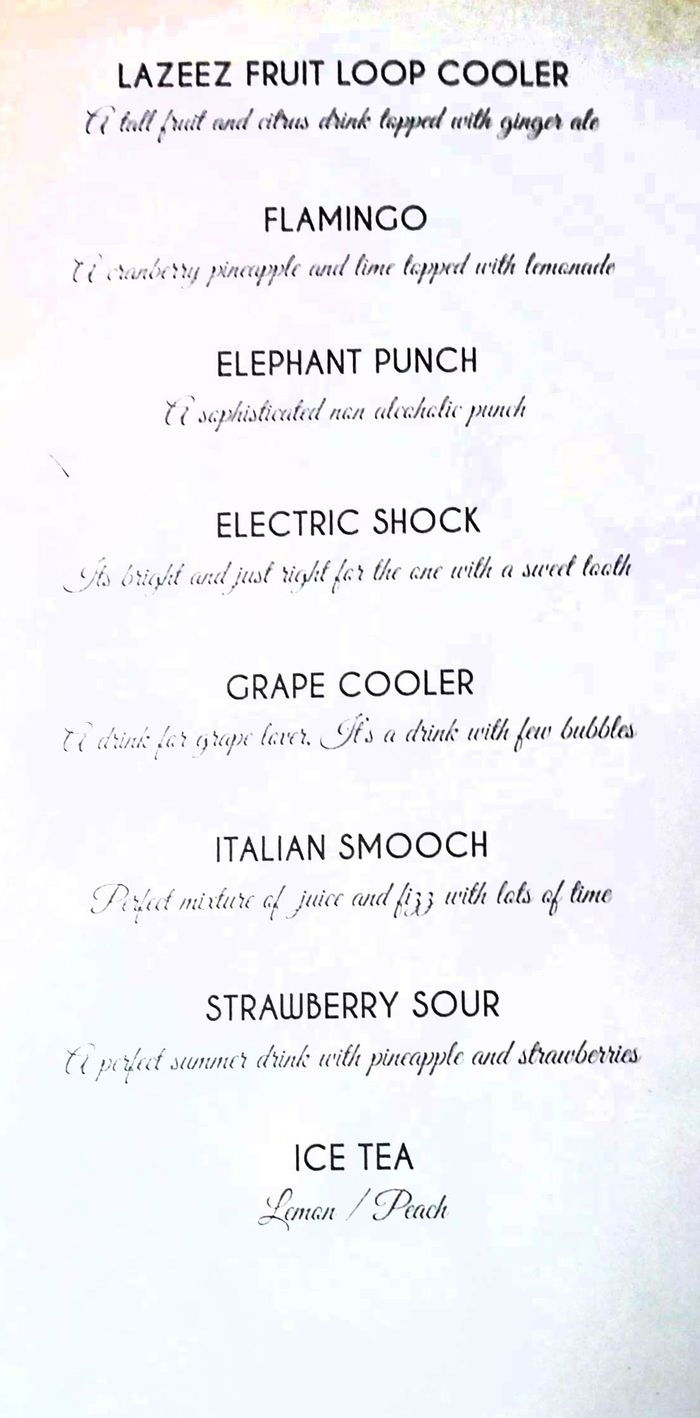 LAZEEZ FRUIT LOOP COOLER
A tall fruit and citrus drink topped with ginger ale
FLAMINGO
A cranberry pineapple and lime topped with lemonade
ELEPHANT PUNCH
A sophisticated non alcoholic punch
ELECTRIC SHOCK
Its bright and just right for the one with a sweet tooth
GRAPE COOLER
A drink for grape lover. It's a drink with few bubbles
ITALIAN SMOOCH
Perfect mixture of juice and fizz with lots of lime
STRAWBERRY SOUR
A perfect summer drink with pineapple and strawberries
ICE TEA
Lemon / Peach